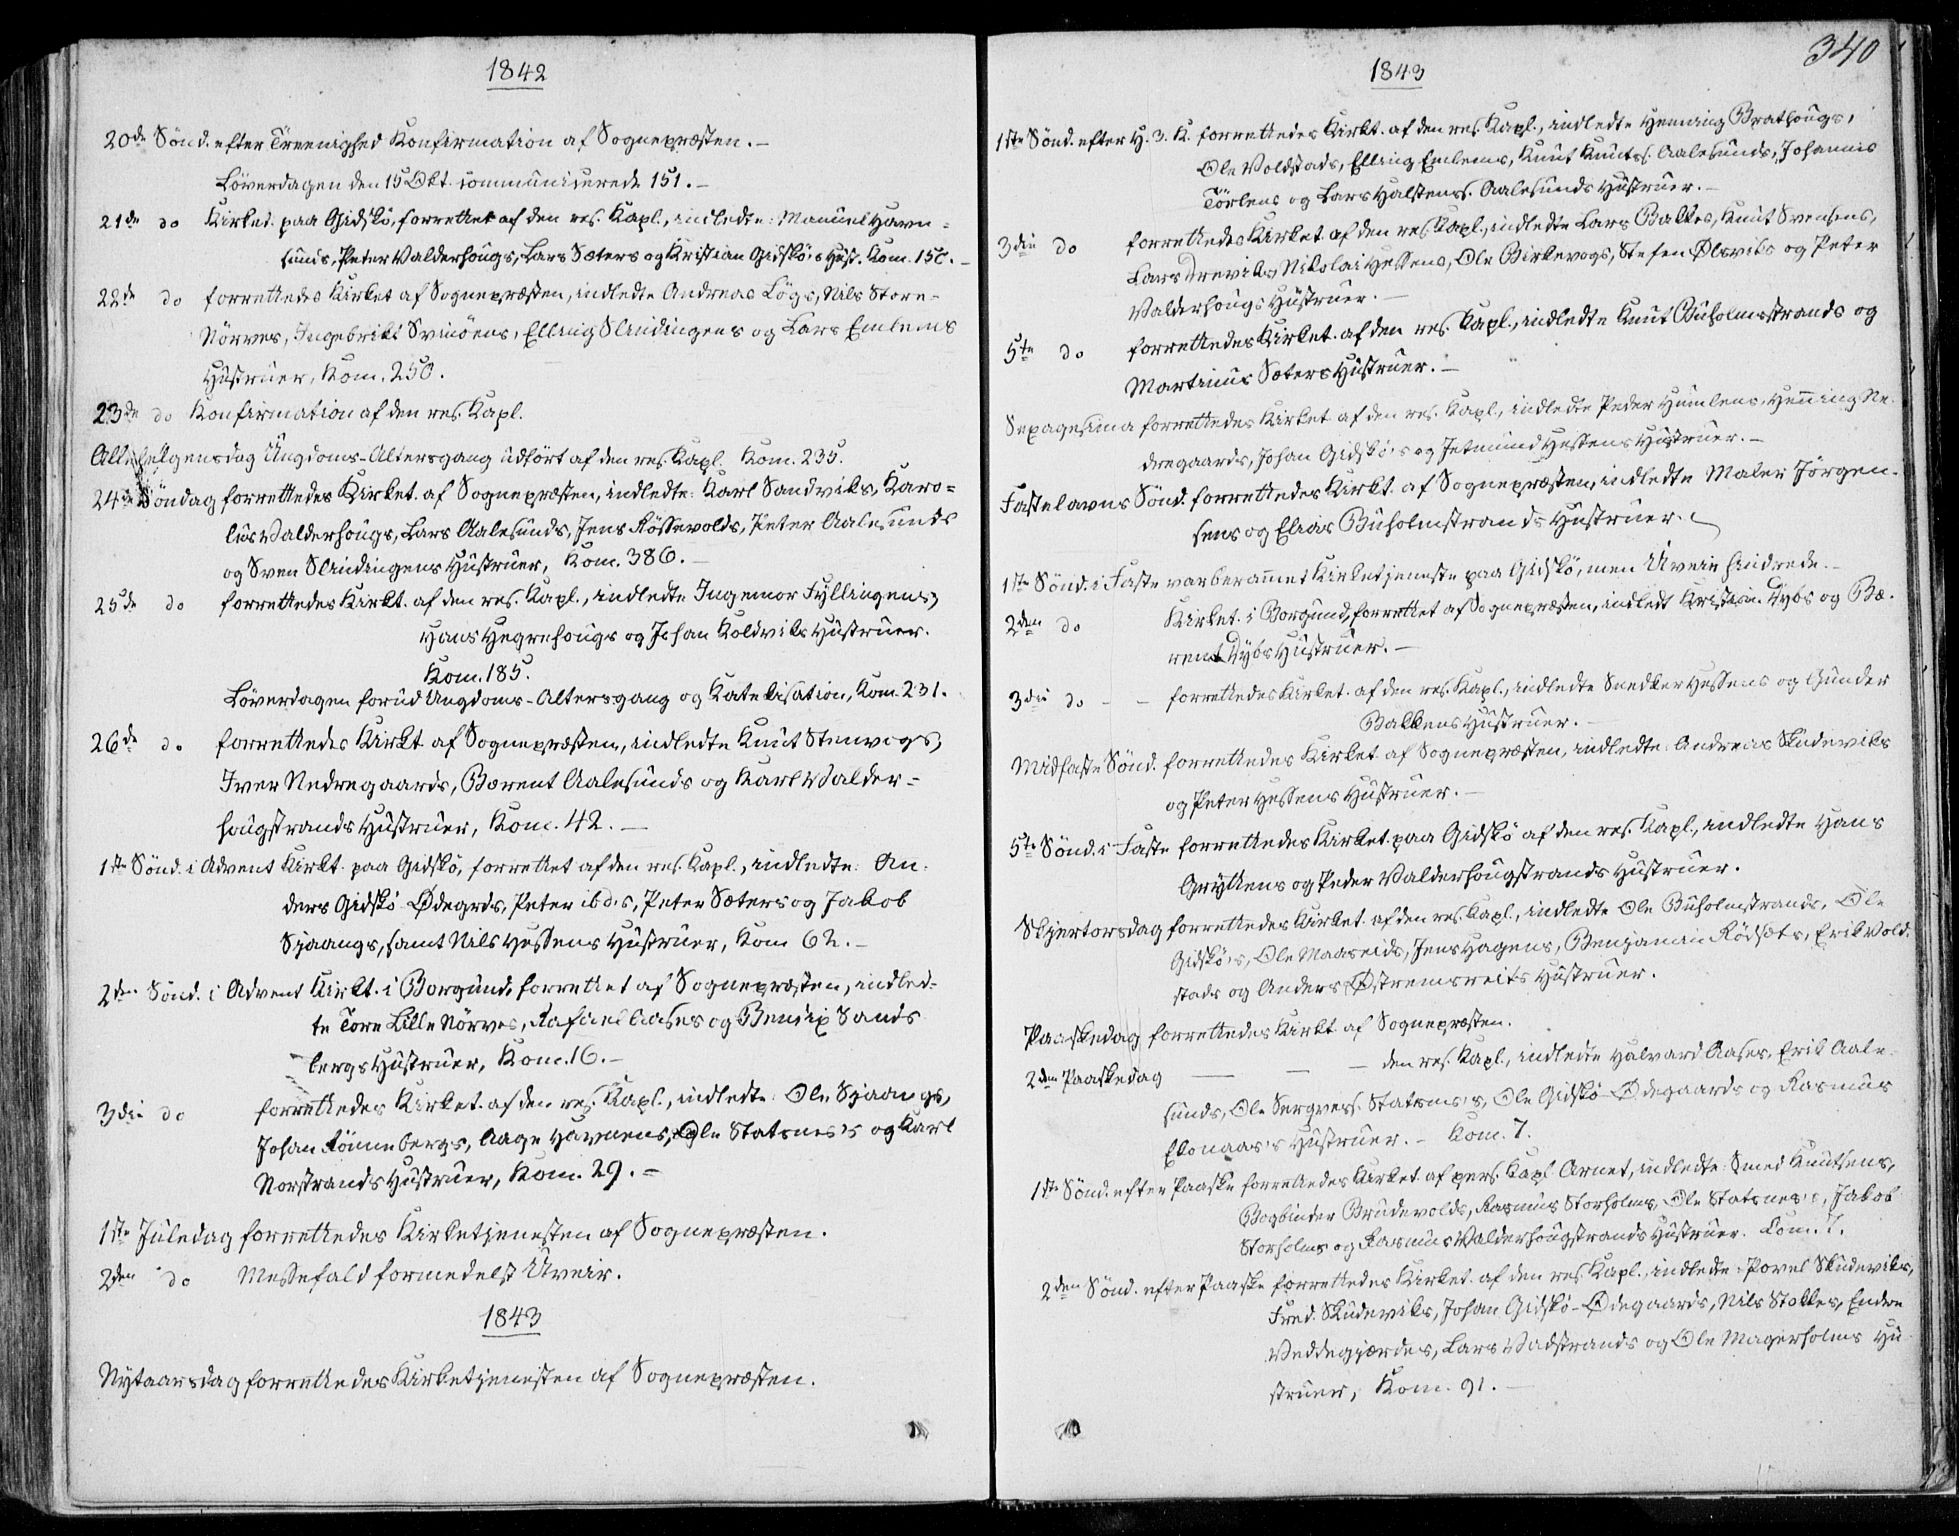 1842
20de Sønd. efter Treenighed Konfirmation af Sognepræsten. –
Löverdagen den 15 Okt. communicerede 151. –
21de do Kirket. paa Gidskö, forrettet af den res. Kapl., indledte: Manuel Havn=
sunds, Peter Valderhougs, Lars Sæters og Kristian Gidskö's Hust. Kom. 150. –
22de do forrettedes Kirket af Sognepræsten, indledte Andreas Lögs, Nils Store=
Nörves, Ingebrikt Svinöens, Elling Slindingens og Lars Emlems
Hustruer, Kom. 250.
23de do Konfirmation af den res. Kapl.
Allehelgensdag Ungdoms-Altersgang udfört af den res. Kapl. Kom. 235.
24de Söndag forrettedes Kirket. af Sognepræsten, indledte: Karl Sandviks, Karo=
lus Valderhougs, Lars Aalesunds, Jens Rössevolds, Peter Aalesunds
og Sven Slindingens Hustruer, Kom. 386. –
25de do forrettedes Kirkt. af den res. Kapl., indledte Ingemor Fyllingens,
Hans Hegrehougs og Johan Koldviks Hustruer.
Kom. 185.
Löverdagen forud Ungdoms-Altersgang og Katekisation, Kom. 231.
26de do forrettedes Kirkt af Sognepræsten, indledte Knut Stenvogs,
Iver Nedregaards, Bærent Aalesunds og Karl Valder=
hougstrands Hustruer, Kom. 42. –
1ste Sønd. i Advent Kirkt. paa Gidskö, forrettet af den res. Kapl., indledte: An=
ders Gidskö-Ødegrds, Peter ibd's, Peter Sæters og Jakob
Sjaangs, samt Nils Hessens Hustruer, Kom 62. –
2den Sønd. i Advent Kirkt. i Borgund, forrettet af Sognepræsten, indled=
te Tore Lille Nörves, Rafael Aases og Bendix Sands
bergs Hustruer, Kom. 16. –
3die do forrettedes Kirket. af den res. Kapl., indledte: Ole Sjaangs,
Johan Rönnebergs, Aage Havnens, Ole Statsnes's og Karl
Norstrands Hustruer, Kom. 29. –
1ste Juledag forrettedes Kirketjenesten af Sognepræsten.
2den do Messefald formedelst Uveir.
1843
Nytaarsdag forrettedes Kirketjenesten af Sognepræsten.
340
1843
1ste Sønd. efter H. 3. K. forrettedes Kirkt. af den res. Kapl., indledte Henning Brathougs,
Ole Voldstads, Elling Emlems, Knut Knuts. Aalesunds, Johannes
Törlens og Lars Halstens. Aalesunds Hustruer. –
3die do forrettedes Kirket af den res. Kapl., indledte Lars Balkes, Knut Svensens,
Lars Dreviks, Nikolai Hessens, Ole Birkevogs, Stefen Ølsviks og Peter
Valderhougs Hustruer. –
5te do forrettedes Kirket. af den res. Kapl., indledte Knut Buholmstrands og
Martinus Sæters Hustruer. –
Sexagesima forrettedes Kirket af den res. Kapl., indledte Peder Humlens, Henning Ne=
dregaards, Johan Gidskö's og Jetmund Hessens Hustruer. –
Fastelavns Sønd. forrettedes Kirkt. af Sognepræsten, indledte Maler Jörgen=
sens og Elias Buholmstrands Hustruer.
1ste Sønd. i Faste var berammet Kirketjeneste paa Gidskö, men Uveir hindrede. –
2den do Kirket. i Borgund, forrettet af Sognepræsten, indledt Kristen. Dybs og Bæ=
rent Dybs Hustruer. –
3die do – – forrettedes Kirket. af den res. Kapl., indledte Snedker Hessens og Gunder
Balkens Hustruer. –
Midfaste Sønd. forrettedes Kirket af Sognepræsten, indledte: Andreas Skudeviks
og Peter Hessens Hustruer. –
5te Sønd. i Faste forrettedes Kirket. paa Gidskö af den res. Kapl., indledte Hans
Gryttens og Peder Valderhougstrands Hustruer.
Skjertorsdag forrettedes Kirket. af den res. Kapl., indledte Ole Buholmstrands, Ole
Gidskö's, Ole Maaseids, Jens Hagens, Benjamin Rödsæts, Erik Vold=
stads og Anders Østremsreits Hustruer.
Paaskedag forrettedes Kirkt. af Sognepræsten.
2den Paaskedag — — — den res. Kapl., indledte Halvard Aases, Erik Aale=
sunds, Ole Statsnes's, Ole Gidskö-Ødegaards og Rasmus
Hustruer. – Kom. 7.
1ste Sønd. efter Paaske forrettedes Kirket. af pers. Kapl Arnet, indledte: Smed Knutsens,
Bogbinder Brudevolds, Rasmus Storholms, Ole Statsnes's, Jakob
Storholms og Rasmus Valderhougstrands Hustruer. Kom. 7.
2den Sønd. efter Paaske forrettedes Kirket. af den res. Kapl., indledte: Povel Skudeviks,
Fred. Skudeviks, Johan Gidskö-Ødegaards, Nils Stokkes, Endre
Veddegjærdes, Lars Vadstrands og Ole Magerholms Hu=
struer, Kom. 91. –